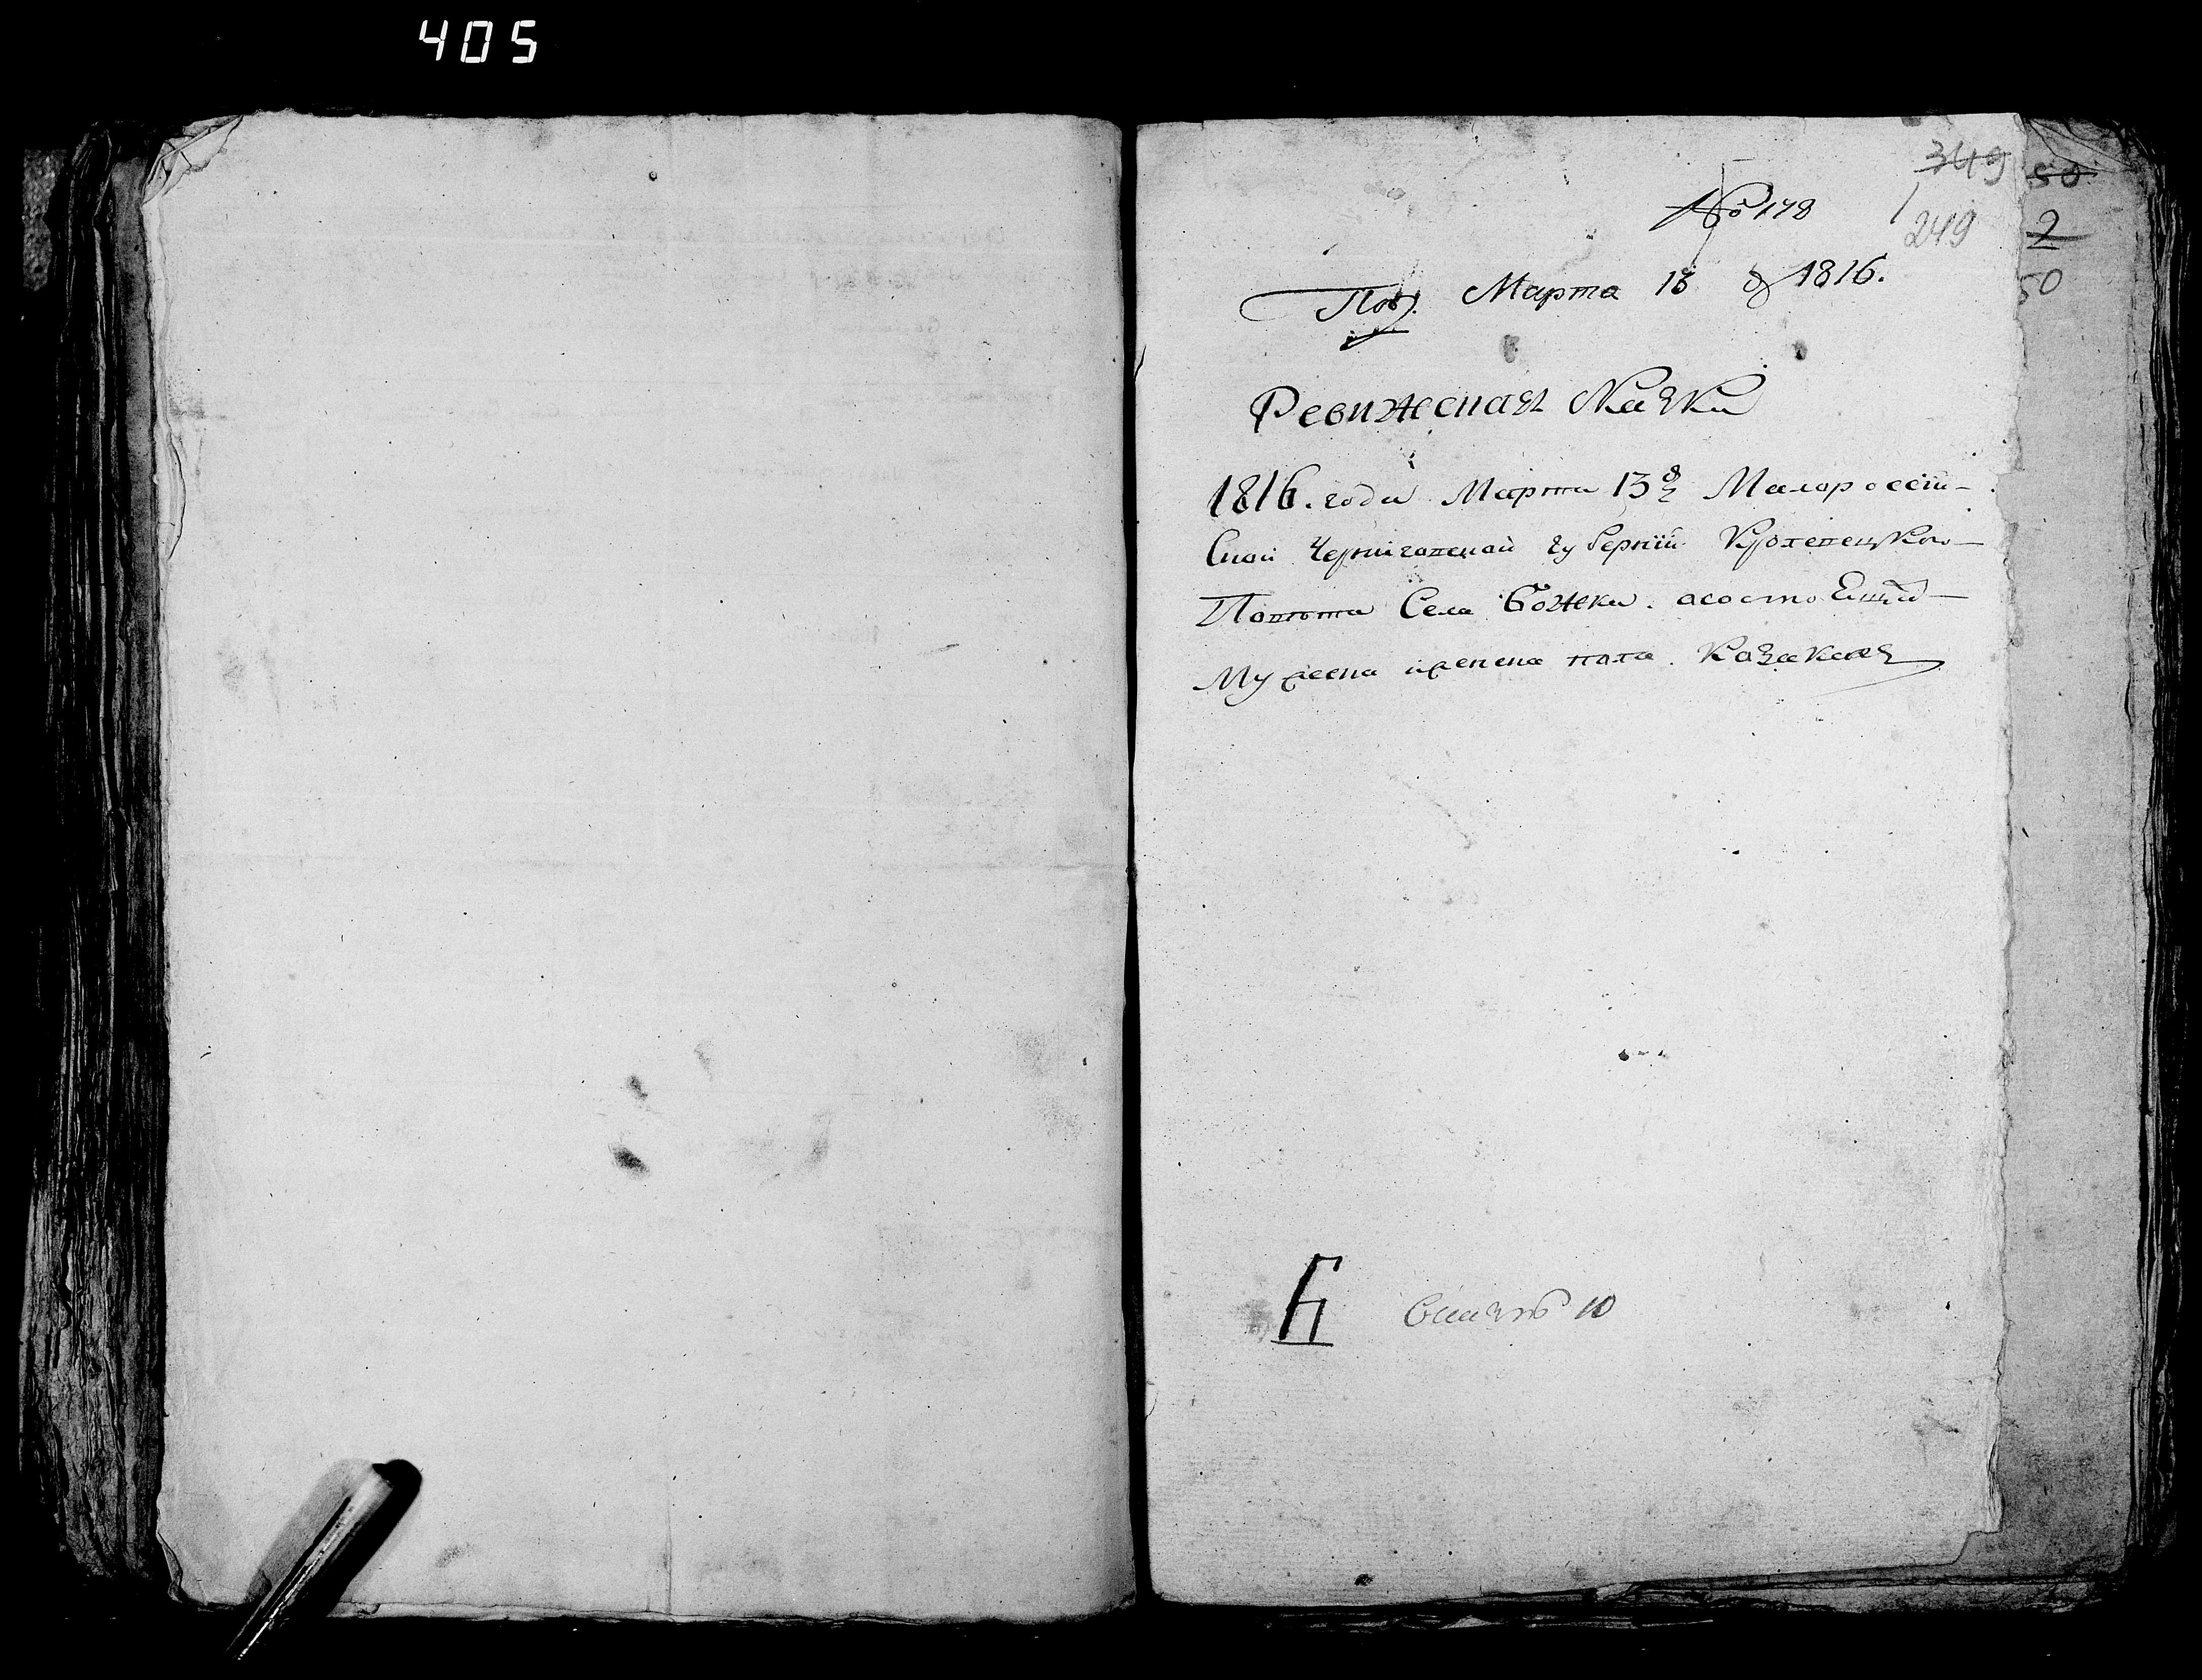 405
349
50
№ 178
249
2
50
Пов. Марта 13 д 1816.
Ревижская Сказка
1816. года Марта 13 д Малороссій-
Ской Черниговской губерніи Кролевецкого
Повѣта Села Божка. о состоящи-
Мужеска и женска пола. Казакахъ
10